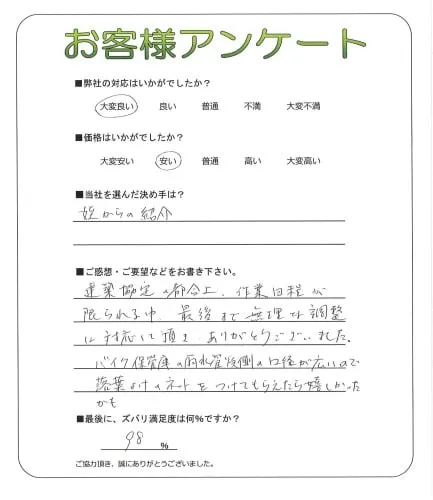 お客様アンケート
■弊社の対応はいかがでしたか?
大変良い 良い 普通 不満 大変不満
■価格はいかがでしたか?
大変安い 安い 普通 高い 大変高い
■当社を選んだ決め手は?
からの紹介
■ご感想・ご要望などをお書き下さい。
建築協定の都合上、作業日程が
限られる中、最後まで無理な調整
に対応して頂き ありがとうございました。
バイク保管庫の雨水管側の口径が広いので
落葉よけのネットをつけてもらえたら嬉しかった
かも
■最後に、ズバリ満足度は何%ですか?
98 %
ご協力頂き、誠にありがとうございました。